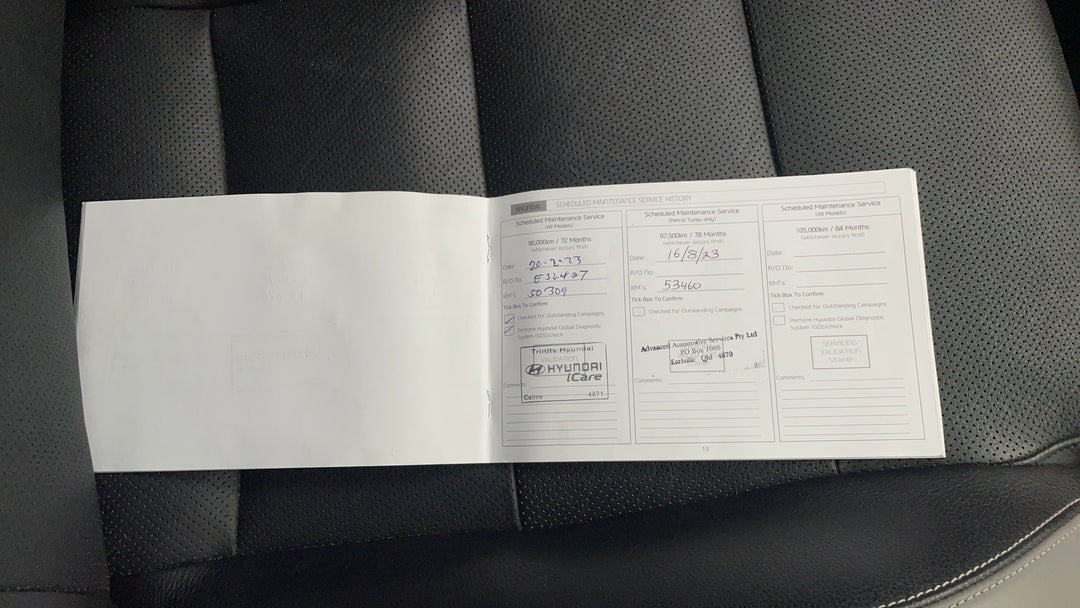 HYUNDAI SCHEDULED MAINTENANCE SERVICE HISTORY
Scheduled Maintenance Service
(All Models)
90,000km / 72 Months
(whichever occurs first)
Date 20-2-23
R/O No E32427
KM's: 50309
Tick Box To Confirm:
Checked for Outstanding Campaigns
Perform Hyundai Global Diagnostic
System (GDS)check
Trinity Hyundai
VALIDATION
HYUNDAI
iCare
Cairns 4871
Comments:
Scheduled Maintenance Service
(Petrol Turbo only)
97,500km / 78 Months
(whichever occurs first)
Date 16/8/23
R/O No:
KM's: 53460
Tick Box To Confirm:
Checked for Outstanding Campaigns.
Advanced Automotive Services Pty Ltd
PO Box 1086
Earlville Qld 4870
Comments:
Scheduled Maintenance Service
(All Models)
105,000km / 84 Months
(whichever occurs first)
Date
R/O No:
KM's:
Tick Box To Confirm:
Checked for Outstanding Campaigns
Perform Hyundai Global Diagnostic
System (GDS)check
SERVICING
VALIDATION
STAMP
Comments:
19